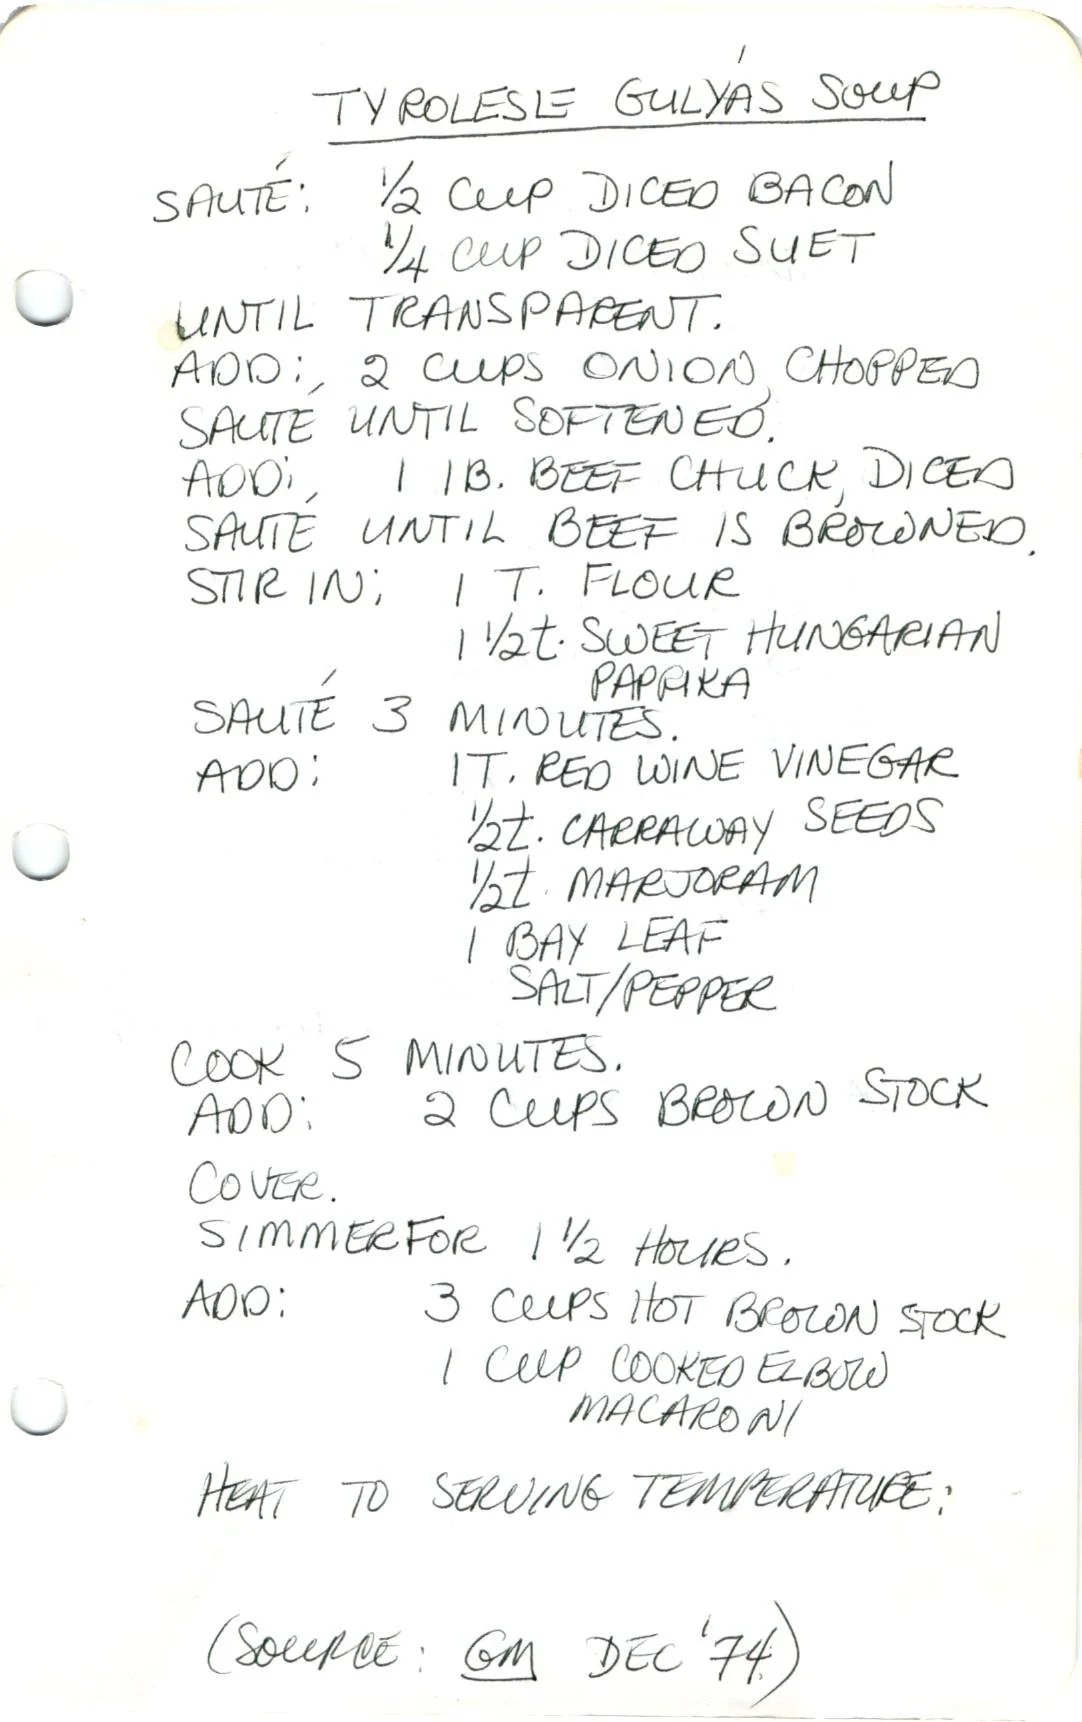 TYROLESLE GULYÁS SOUP
SAUTÉ: 1/2 CUP DICED BACON
1/4 CUP DICED SUET
UNTIL TRANSPARENT.
ADD: 2 CUPS ONION, CHOPPED
SAUTÉ UNTIL SOFTENED.
ADD: 1 lB. BEEF CHUCK, DICED
SAUTÉ UNTIL BEEF IS BROWNED.
STIR IN: 1 T. FLOUR
1 1/2 t. SWEET HUNGARIAN
PAPRIKA
SAUTÉ 3 MINUTES.
ADD: 1 T. RED WINE VINEGAR
1/2 t. CARRAWAY SEEDS
1/2 t. MARJORAM
1 BAY LEAF
SALT/PEPPER
COOK 5 MINUTES.
ADD: 2 CUPS BROWN STOCK
COVER.
SIMMER FOR 1 1/2 HOURS.
ADD: 3 CUPS HOT BROWN STOCK
1 CUP COOKED ELBOW
MACARONI
HEAT TO SERVING TEMPERATURE.
(SOURCE: GM DEC '74)